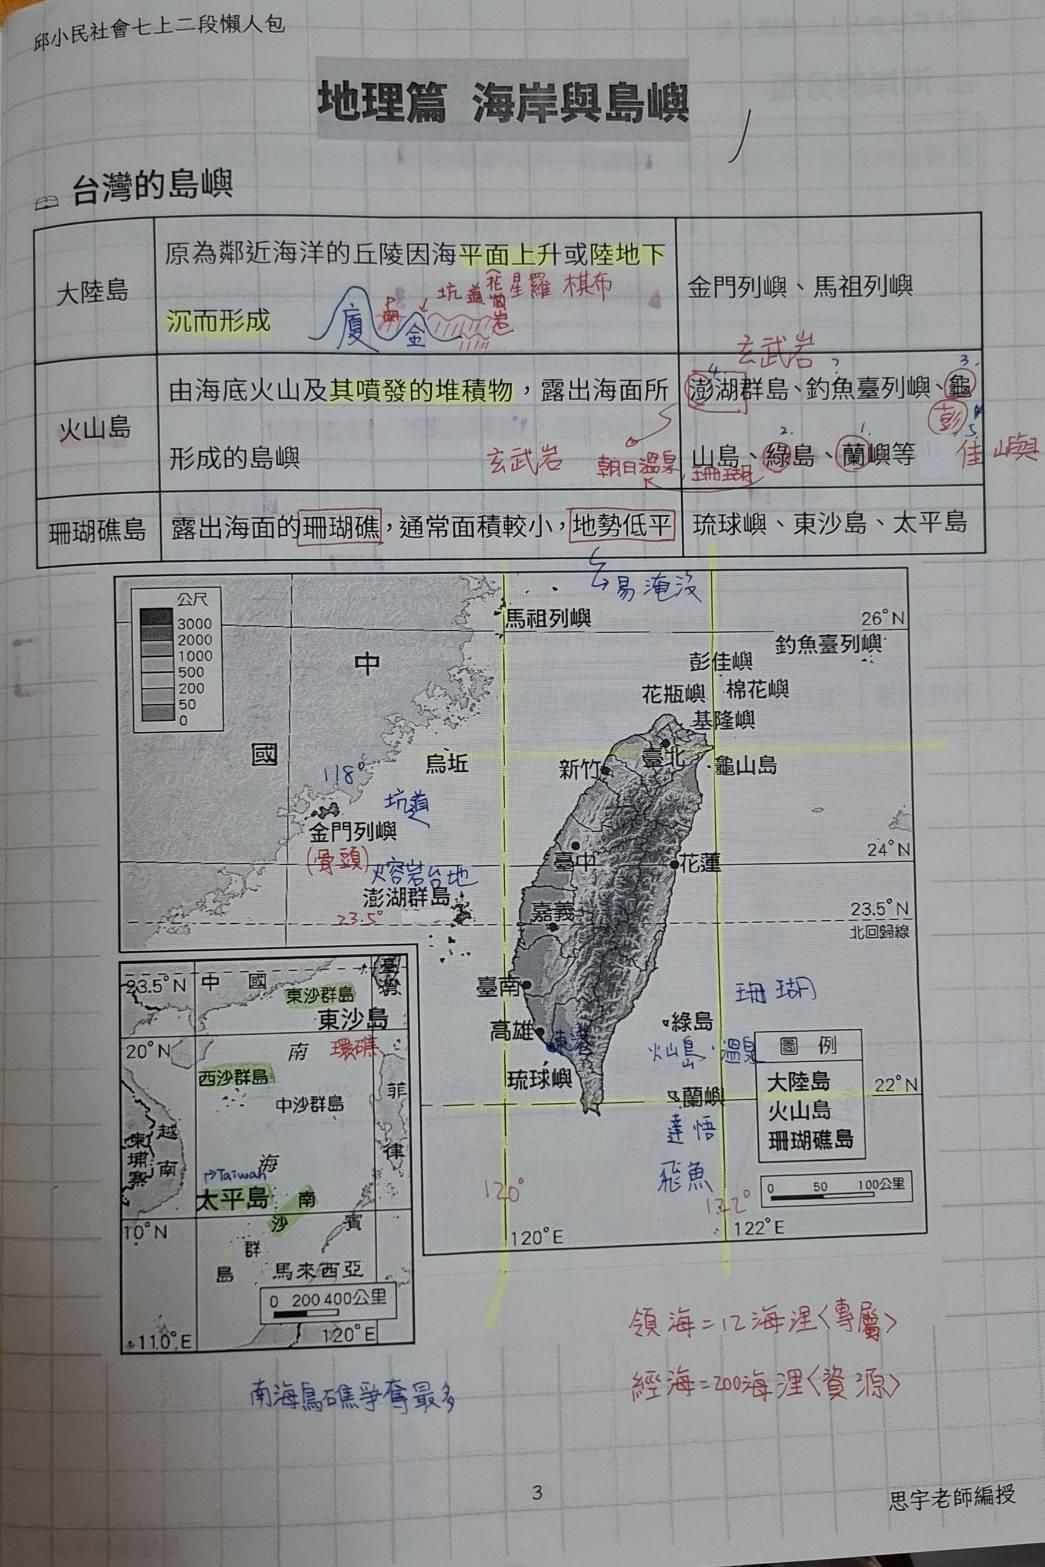 邱小民社會七上二段懶人包
地理篇 海岸與島嶼
台灣的島嶼
大陸島
原為鄰近海洋的丘陵因海平面上升或陸地下
沉而形成
坑道 星羅棋布
花崗岩
廈
金
金門列嶼、馬祖列嶼
玄武岩
火山島
由海底火山及其噴發的堆積物，露出海面所
形成的島嶼
玄武岩
朝日溫泉
珊瑚
4. 3.
澎湖群島、釣魚臺列嶼、龜
2. 1.
山島、綠島、蘭嶼等
彭
佳嶼
5.
珊瑚礁島
露出海面的珊瑚礁，通常面積較小，地勢低平
琉球嶼、東沙島、太平島
易淹沒
公尺
3000
2000
1000
500
200
50
0
馬祖列嶼
26°N
釣魚臺列嶼
中
彭佳嶼
花瓶嶼 棉花嶼
基隆嶼
國
烏坵
臺北
龜山島
新竹
118°
坑道
金門列嶼
(骨頭)
熔岩台地
臺中
花蓮
24°N
澎湖群島
23.5°
嘉義
23.5°N
北回歸線
臺南
珊瑚
高雄
東港
綠島
火山島、溫泉
琉球嶼
蘭嶼
22°N
達悟
飛魚
圖 例
大陸島
火山島
珊瑚礁島
0 50 100公里
120°
122°
120°E
122°E
23.5°N
中 國
臺灣
東沙群島
東沙島
20°N
南
環礁
西沙群島
中沙群島
菲
越
南
柬埔寨
海
律
Taiwan
太平島
南
沙
賓
10°N
群
島
馬來西亞
0 200 400公里
110°E
120°E
領海=12海浬<專屬>
經海=200海浬<資源>
南海島礁爭奪最多
3
思宇老師編授